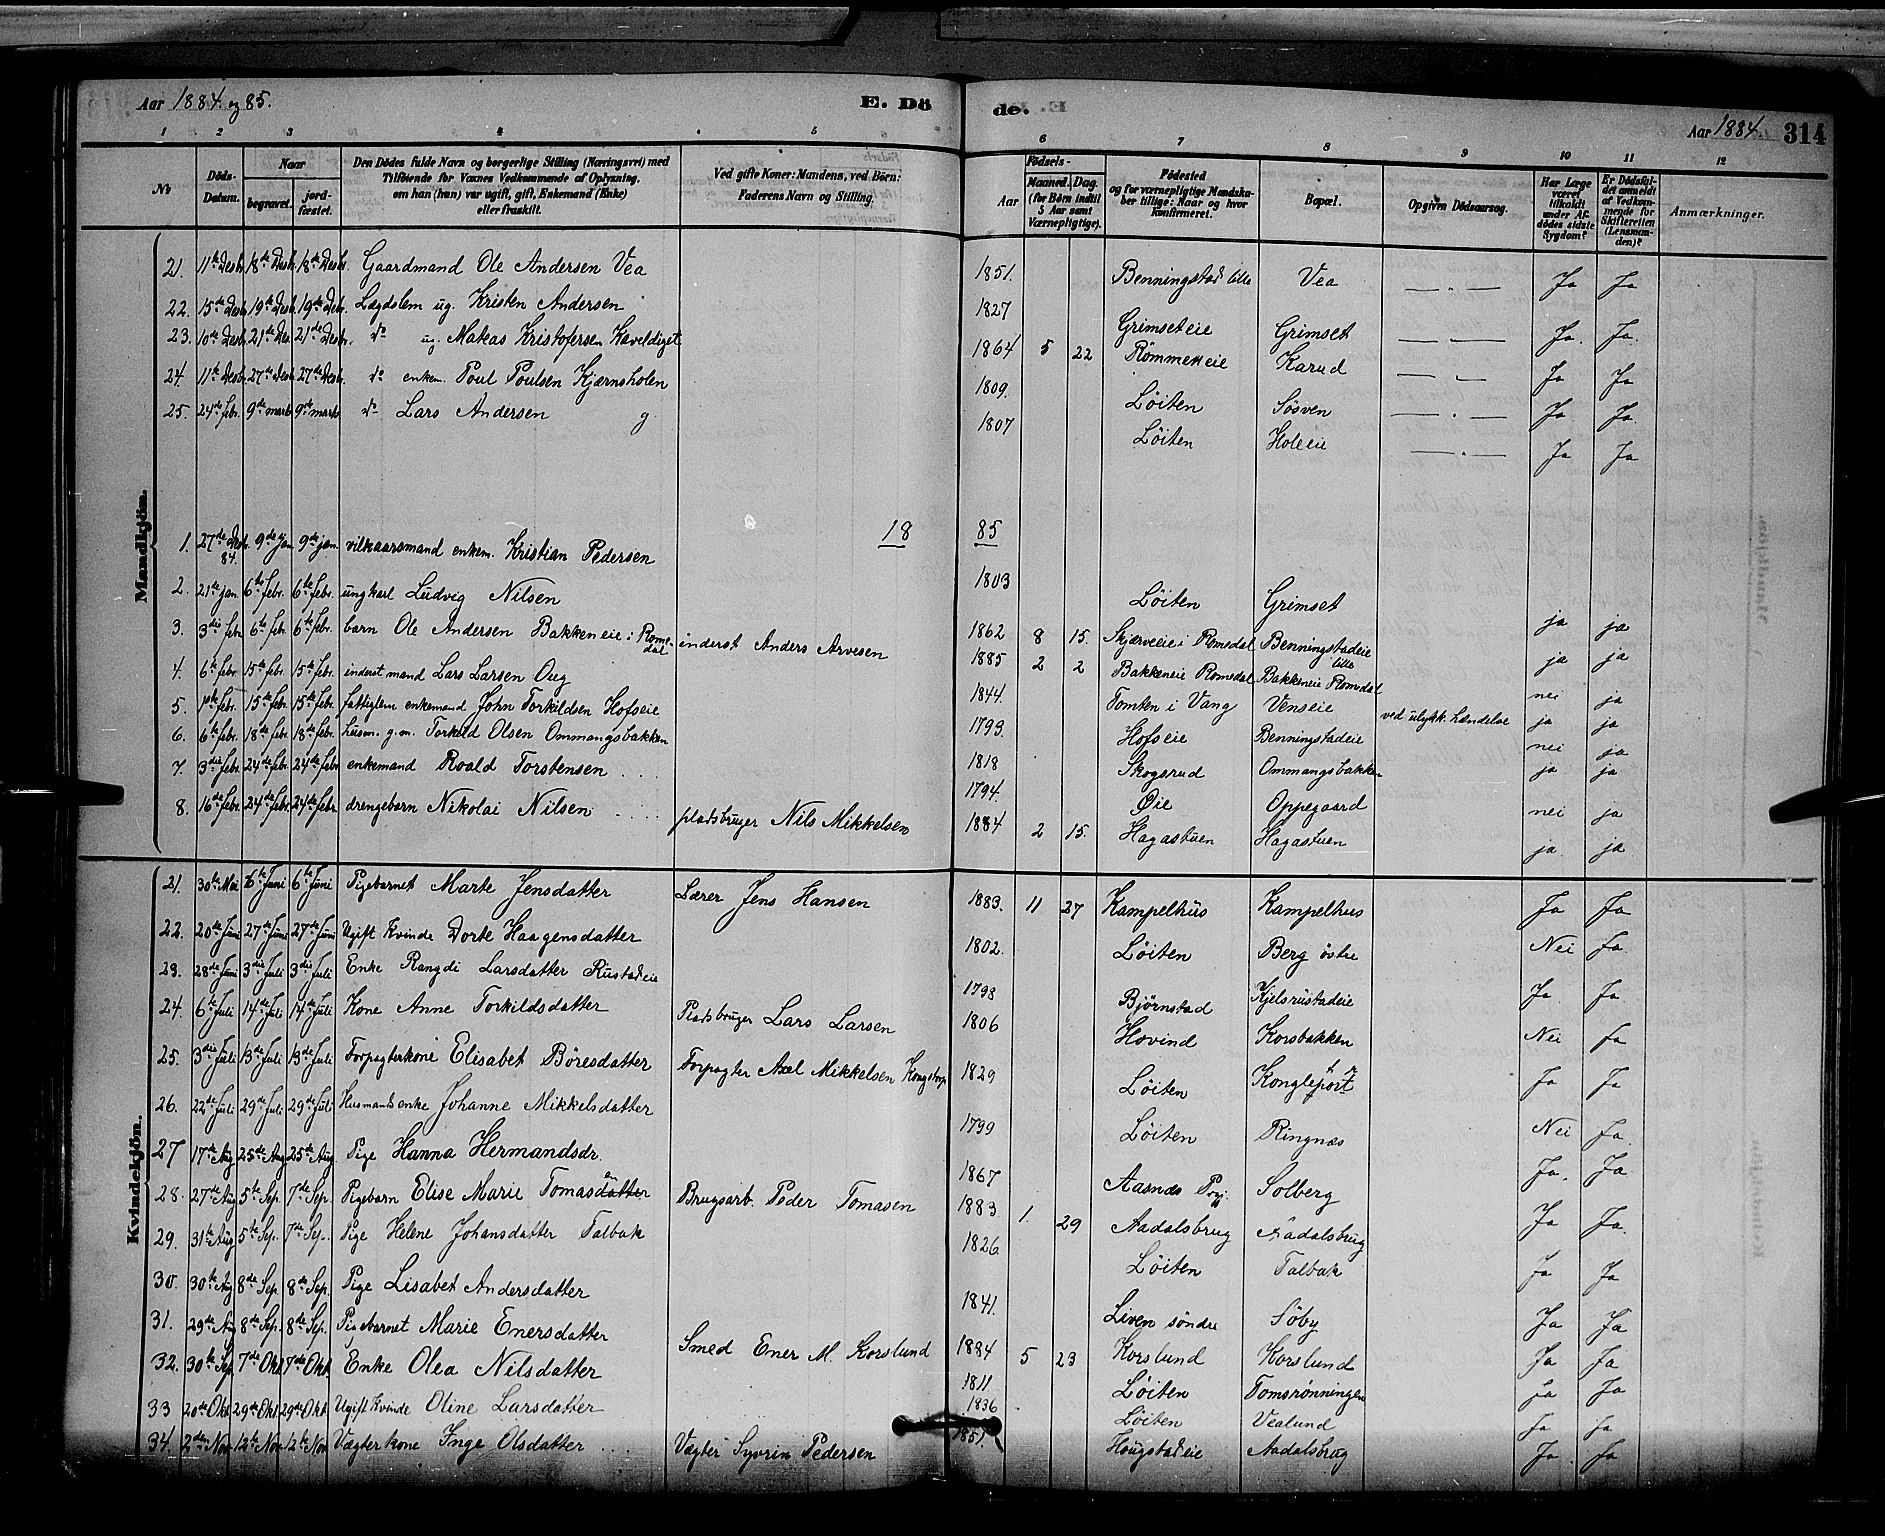 Aar 1884. og 85.
E. Dö
de.
Aar 1884.
314
1 2 3 4 5 6 7 8 9 10 11 12
No
Döds-Datum.
Naar
begravet.
jord-fæstet.
Den Dödes fulde Navn og borgerlige Stilling (Næringsvei) med
Tilföiende for Voxnes Vedkommende af Oplysning,
om han (hun) var ugift, gift, Enkemand (Enke)
eller fraskilt.
Ved gifte Koner: Mandens, ved Börn:
Faderens Navn og Stilling.
Födsels-
Aar
Maaned. Dag.
(for Börn indtil
5 Aar samt
Værnepligtige).
Födested
og for værnepligtige Mandska-
ber tillige: Naar og hvor
konfirmeret.
Bopæl.
Opgiven Dödsaarsag.
Har Læge
været
tilkaldt
under Af-
dödes sidste
Sygdom?
Er Dödsfal-
det anmeldt
af Vedkom-
mende for
Skifteretten
(Lensman-
den)?
Anmærkninger.
Mandkjön.
21. 11te Desb. 18de Desb. 18de Desb. Gaardmand Ole Andersen Vea 1851. Benningstad lille Vea — " — Ja Ja
22. 15de Desb. 19de Desb. 19de Desb. Lægdslem ug. Kristen Andersen 1827 Grimseteie Grimset — " — Ja. Ja.
23. 10de Desb. 21de Des. 21de Desb. do ug. Mateas Kristofersen Kæveldiget 1864 5 22 Römmeneie Karud — " — Ja Ja
24. 11te Desb. 27de Desb. 27de Desb. do enkem. Poul Poulsen Kjærnsholen 1809. Löiten Sösven — " — Ja Ja.
25. 24de febr. 9de marts 9de marts do Lars Andersen g 1807 Löiten Holeeie — " — Ja Ja
18 85
1. 27de Desb. 84. 9de jan 9de jan. vilkaarsmand enkem. Kristian Pedersen 1803 Löiten Grimset ja ja
2. 21de jan. 6te febr. 6te febr. ungkarl Ludvig Nilsen 1862 8 15. Skjærveeie i Romedal Benningstadeie lille ja ja
3. 3die febr 6te febr. 6te febr. barn Ole Andersen Bakkeneie i Romedal inderst Anders Arvesen 1885 2 2 Bakkeneie Romedal Bakkeneie Romedal nei ja
4. 6te febr. 15de febr. 15de febr. inderst mand Lars Larsen Oug 1844. Tomten i Vang Venseie ved ulykk. hændelse ja ja
5. 1ste febr. 15de febr. 15de febr. fattiglem enkemand John Torkildsen Hofseie 1793. Hofseie Benningstadeie nei ja
6. 6te febr. 18de febr. 18de febr. husm. g.m. Torkild Olsen Ommangsbakken 1818 Skogsrud Ommangsbakken ja ja
7. 3die febr. 24de febr. 24de febr. enkemand Roald Torstensen 1794. Öie Oppegaard nei ja
8. 16de febr. 24de febr. 24de febr. drengebarn Nikolai Nilsen pladsbruger Nils Mikkelsen 1884 2 15. Hagastuen Hagastuen ja ja
Kvindekjön.
21. 30te Mai 6te Juni 6te Juni Pigebarnet Marte Jensdatter Lærer Jens Hansen 1883. 11 27 Kampelhus Kampelhus Ja Ja
22. 20de Juni 27de Juni 27de Juni Ugift Kvinde Dorte Haagensdatter 1802. Löiten Berg östre Nei Ja.
23. 28de Juni 3die Juli 3die Juli Enke Rangdi Larsdatter Rustadeie 1798 Björnstad Kjelsrustadeie Ja Ja.
24. 6te Juli 14de Juli 14de Juli Kone Anne Torkildsdatter Pladsbruger Lars Larsen 1806 Hovind Korsbakken Nei Ja
25. 3die Juli 13de Juli 13de Juli Forpagterkone Elisabet Böresdatter Forpagter Axel Mikkelsen 1829 Löiten Ja Ja
26. 22de Juli 29de Juli 29de Juli Husmandsenke Johanne Mikkelsdatter 1799 Löiten Ringnæs Nei Ja.
27 17de Aug 25de Aug. 25de Aug. Pige Hanna Hermandsdr. 1867 Aasnæs Prgj. Solberg Ja. Ja
28. 27de Aug 5te Sep. 7de Sep. Pigebarn Elise Marie Tomasdatter en Brugsarb. Peder Tomasen 1883 1. 29 Aadalsbrug Aadalsbrug Ja Ja.
29. 31te Aug 5te Sep. 7de Sep. Pige Helene Johansdatter Talbak 1826 Löiten Talbak Ja Ja
30. 30te Aug 8de Sep. 8de Sep. Pige Lisabet Andersdatter 1841. Liven söndre Söby Ja Ja
31. 29de Aug 8de Sep. 8de Sep. Pigebarnet Marie Enersdatter Smed Ener M. Korslund 1884 5 23 Korslund Korslund Ja Ja
32. 30te Sep. 7de Okt. 7de Okt. Enke Olea Nilsdatter 1811 Löiten Tomsrönningen Ja Ja
33 20de Okt. 29de Okt. 29de Okt. Ugift Kvinde Oline Larsdatter 1836 Löiten Vealund Ja Ja
34. 2den Nov. 12te Nov. 12te Nov. Vægterkone Inge Olsdatter Vægter Syvrin Pedersen 1851. Hougstadeie Aadalsbrug Ja. Ja